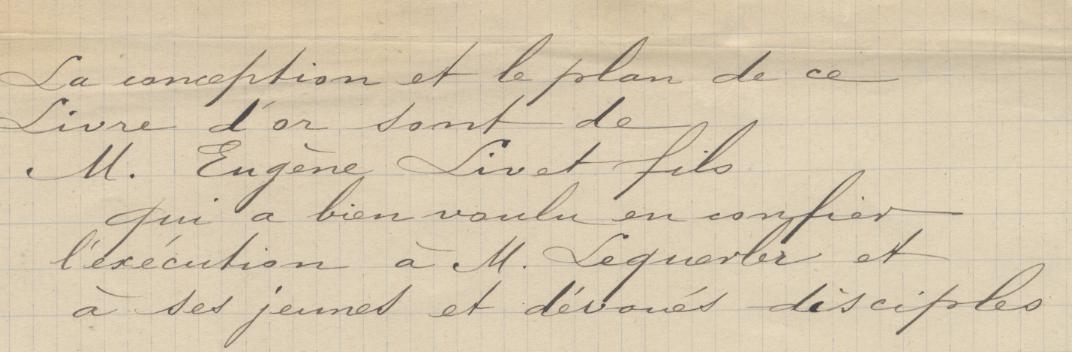 La conception et le plan de ce
Livre d'or sont de
M. Eugène Livet fils
qui a bien voulu en confier
l'exécution à M. et
à ses jeunes et dévoués disciples